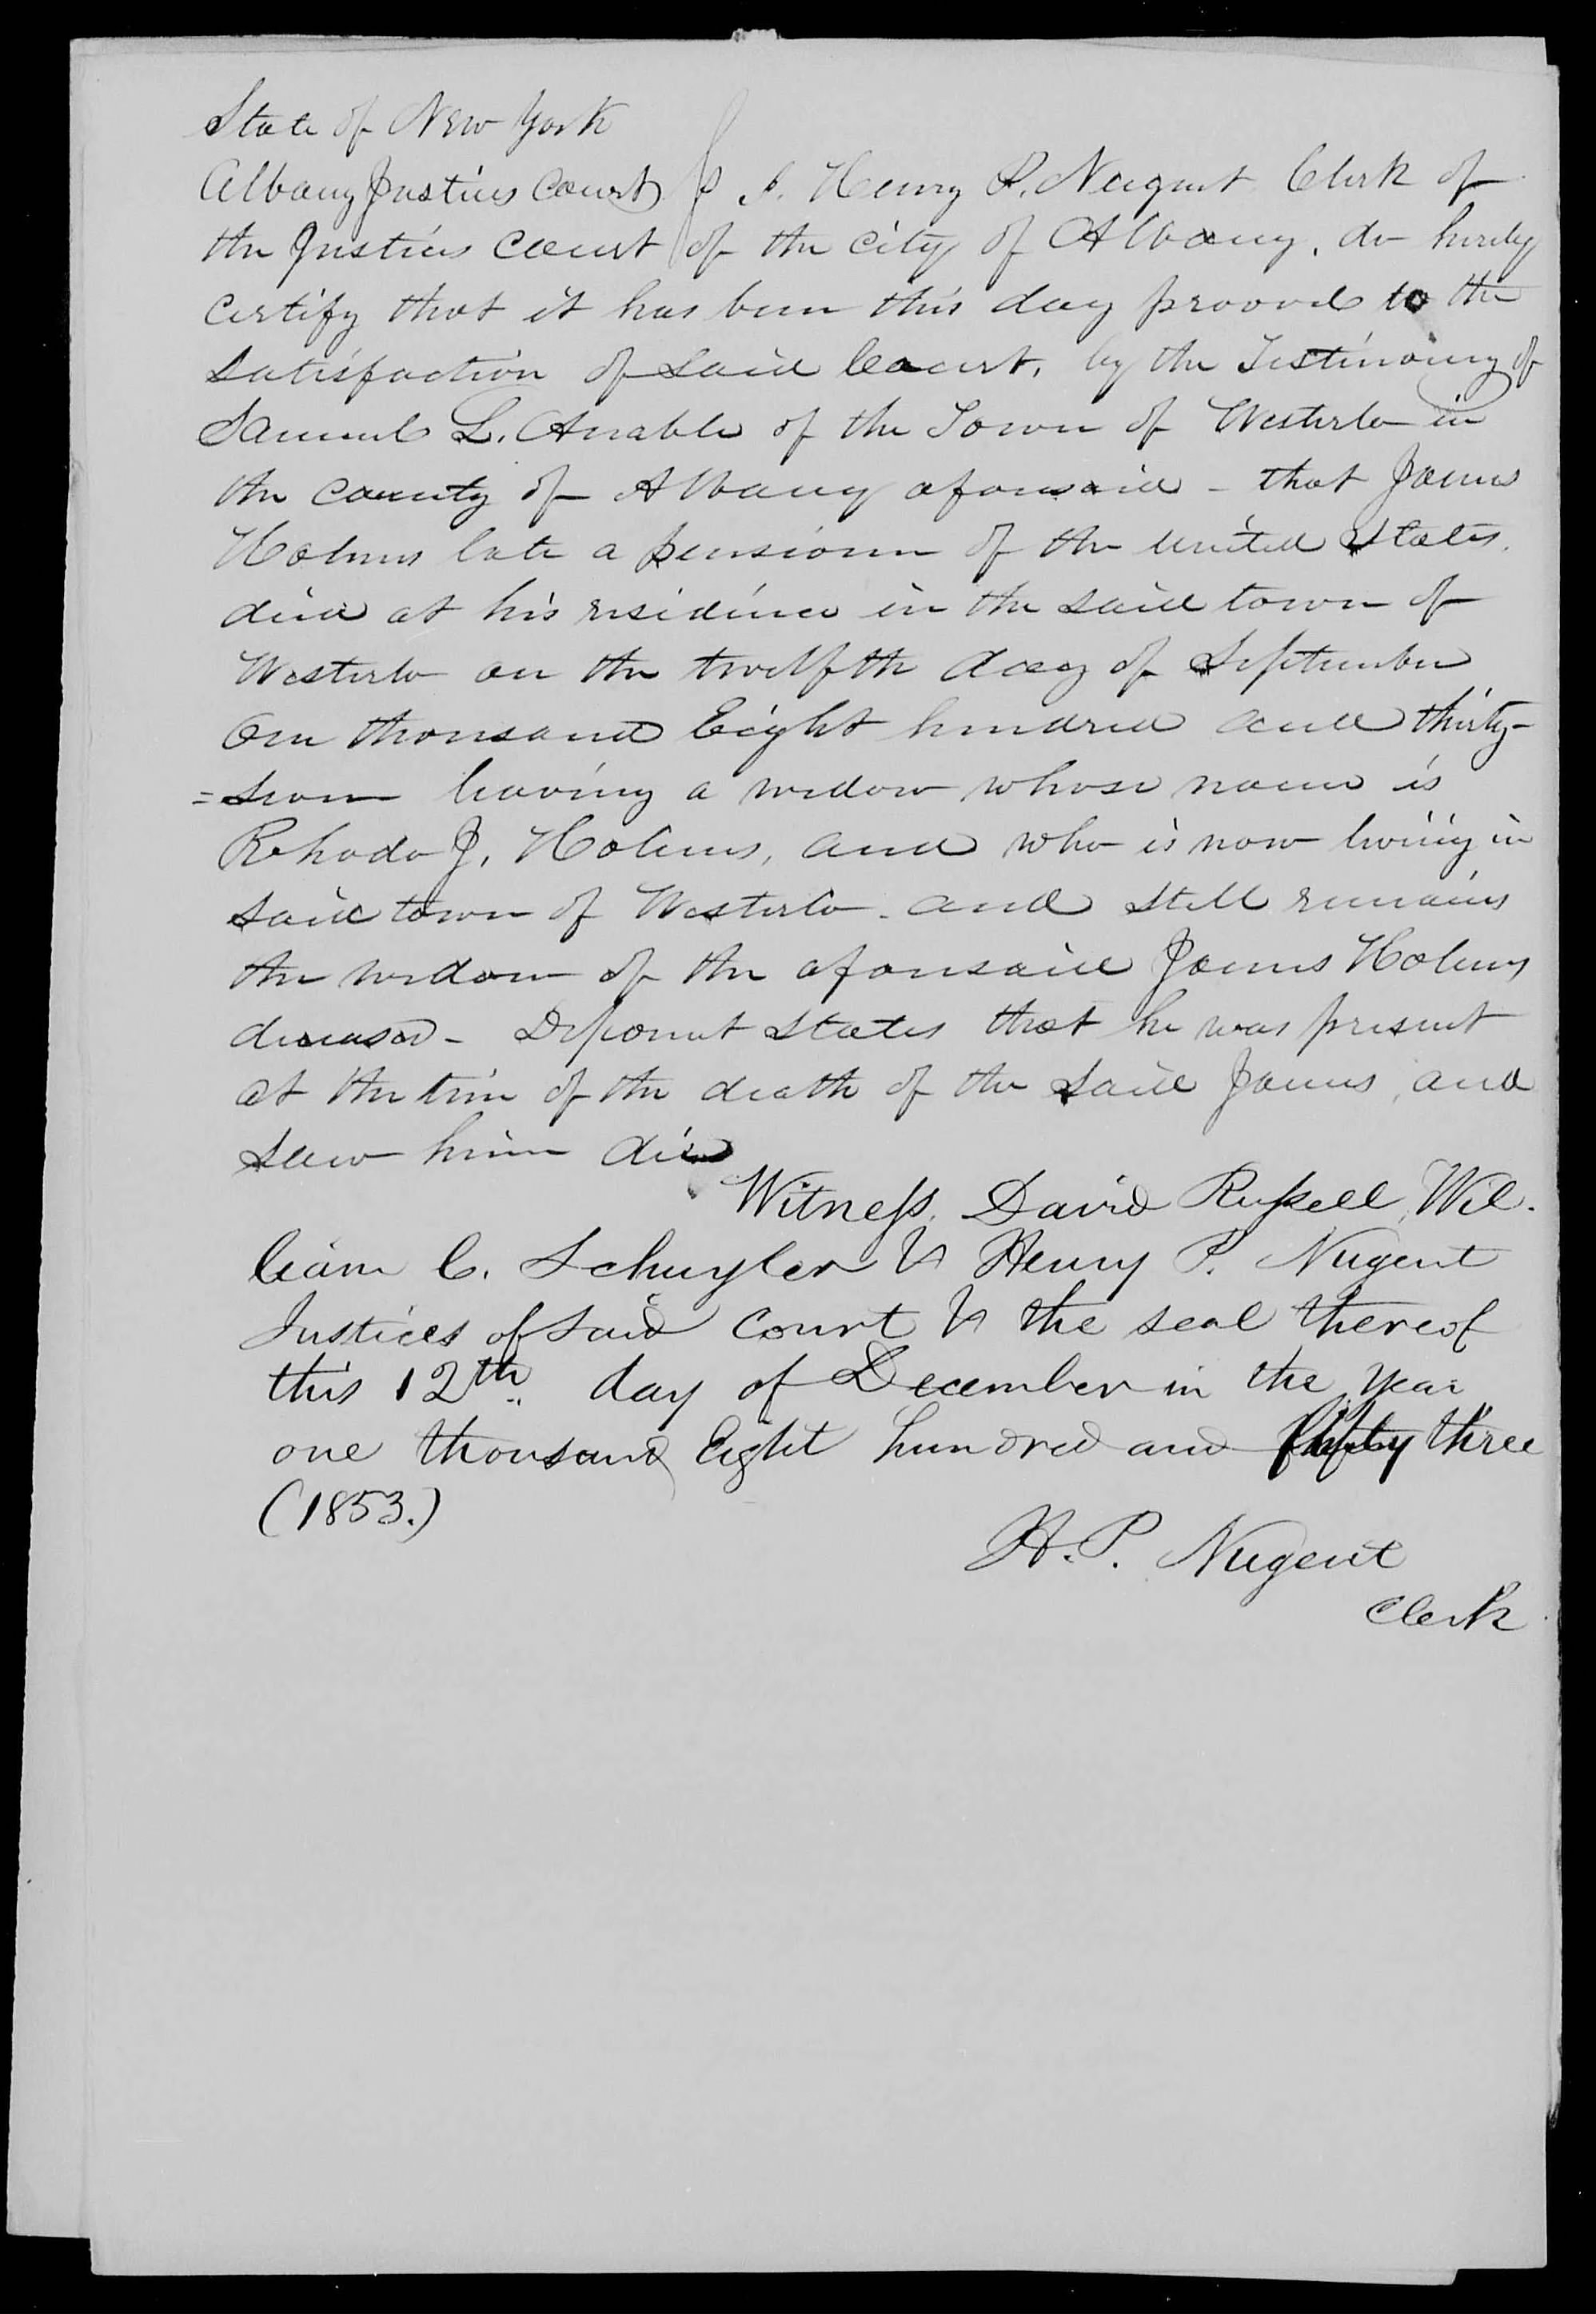 State of New York
Albany Justices Court } ss I. Henry P. Nugent Clerk of
the Justices Court of the City of Albany, do hereby
certify that it has been this day prooved to the
satisfaction of said Court, by the Testimony of
Samuel L. Anable of the Town of Westerlo in
the county of Albany aforesaid - that James
Holmes late a pensioner of the United States.
died at his residence in the said town of
Westerlo on the twelfth day of September
One thousand Eight hundred and thirty-
=seven leaving a widow whose name is
Rhoda J. Holmes, and who is now living in
said town of Westerlo. and still remains
the widow of the aforesaid James Holmes
deceased - Deponent states that he was present
at the time of the death of the said James, and
saw him die
Witness, David Russell, Wil-
liam C. Schuyler & Henry P. Nugent
Justices of said Court & the seal thereof
this 12th day of December in the year
one thousand Eight hundred and fifty three
(1853.)
H. P. Nugent
Clerk